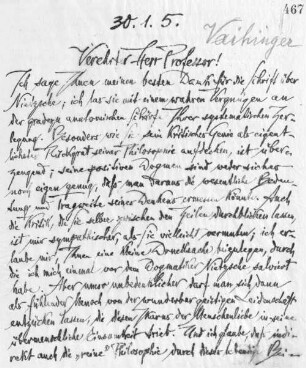 467
30. 1. 5.
Vaihinger
Verehrter Herr Professor!
Ich sage Ihnen meinen besten Dank für die Schrift über
Nietzsche; ich las sie mit einem wahren Vergnügen an
der geradezu anatomischen Schärfe Ihrer systematischen Zer-
legung. Besonders wie Sie sein kritisches Genie als eigent-
liches Rückgrat seiner Philosophie aufdecken, ist über-
zeugend; seine positiven Dogmen sind
genug, daß man daraus die wesentliche Bedeu-
tung und Tragweite seines Denkens ermessen könnte. Auch
die Kritik, die Sie selbst zwischen den Zeilen durchblicken lassen,
ist mir sympathischer, als Sie vielleicht vermuten; ich er-
laube mir, Ihnen eine kleine beizulegen, durch
die ich mich einmal vor dem Dogmatiker Nietzsche salviert
habe. Aber umso unbedenklicher darf man sich dann
als fühlender Mensch von der wunderbar geistigen Leidenschaft
entzücken lassen, die diesen der Menschenliebe in seine
übermenschliche Einsamkeit trieb. Und ich glaube, daß indi-
rekt auch die „reine" Philosophie durch diese